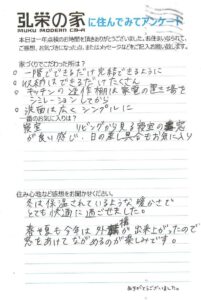 弘栄の家に住んでみてアンケート
MUKU MODERN
本日は一年点検のお時間を頂きありがとうございました。お住まいになられて、
ご感想、お気づきになった点、またはメッセージなどをご記入お願い致します。
家づくりでこだわった所は?
○ 一階でできるだけ完結できるように
○ 収納はできるだけたくさん
○ キッチンの造作棚は家電の置き場を
シミュレーションしてから
○ 洗面は広く シンプルに
一番のお気に入りは?
寝室 リビングから見る寝室の窓
が良い感じ、日の差し具合もお気に入り
住み心地など感想をお聞かせください。
冬は保温されているような暖かさで
とても快適に過ごせました。
春や夏も今年は外構が出来上がったので
窓をあけてながめるのが楽しみです。
ありがとうございました。